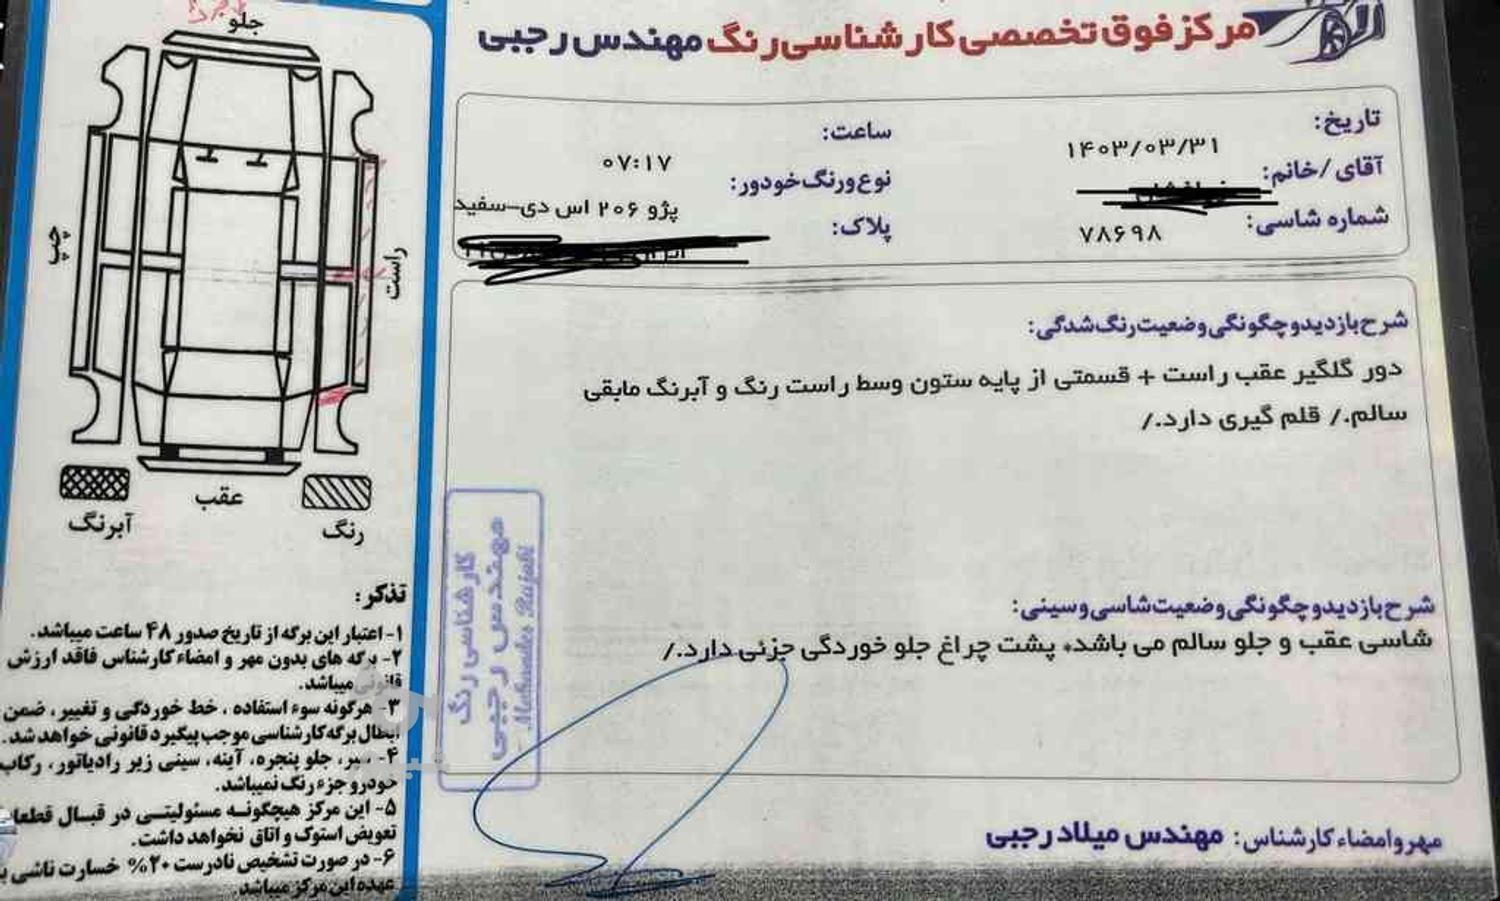 مرکز فوق تخصصی کارشناسی رنگ مهندس رجبی
تاریخ: ۱۴۰۳/۰۳/۳۱
ساعت: ۰۷:۱۷
آقای /خانم:
نوع و رنگ خودور: پژو ۲۰۶ اس دی-سفید
شماره شاسی: ۷۸۶۹۸
پلاک:
شرح بازدید و چگونگی وضعیت رنگ شدگی:
دور گلگیر عقب راست + قسمتی از پایه ستون وسط راست رنگ و آبرنگ مابقی
سالم./ قلم گیری دارد./
شرح بازدید و چگونگی وضعیت شاسی و سینی:
شاسی عقب و جلو سالم می باشد، پشت چراغ جلو خوردگی جزئی دارد./
مهر و امضاء کارشناس: مهندس میلاد رجبی
کارشناسی رنگ
مهندس رجبی
Mohandes Rajabi
جلو
چپ
راست
عقب
آبرنگ
رنگ
تذکر:
۱- اعتبار این برگه از تاریخ صدور ۴۸ ساعت میباشد.
۲- برگه های بدون مهر و امضاء کارشناس فاقد ارزش
قانونی میباشد.
۳- هرگونه سوء استفاده ، خط خوردگی و تغییر ، ضمن
ابطال برگه کارشناسی موجب پیگیرد قانونی خواهد شد.
۴- سپر، جلو پنجره، آینه، سینی زیر رادیاتور، رکاب
خودرو جزء رنگ نمیباشد.
۵- این مرکز هیچگونه مسئولیتی در قبال
تعویض استوک و اتاق نخواهد داشت.
۶- در صورت تشخیص نادرست ۲۰% خسارت ناشی
عهده این مرکز میباشد.